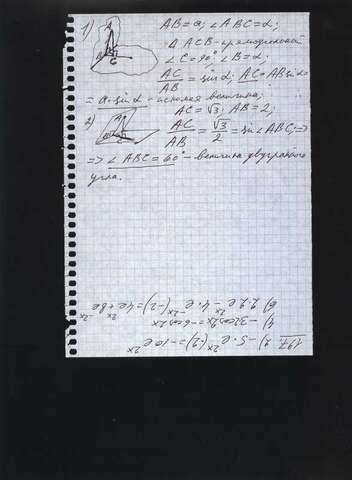 1) AB = a; ∠ABC = α;
Δ ACB - прямоугольный
∠C = 90°; ∠B = α;
AC/AB = sin α; AC = AB sin α =
= a · sin α - искомая величина;
2) AC = √3; AB = 2;
AC/AB = √3/2 = sin ∠ABC; =>
=> ∠ABC = 60° - величина двугранного
угла.
197. 2) -5 · e^{-2x} · (2) = -10 e^{2x}
4) -32cos2x = -6cos2x
6) 2·2·e^{2x} - 4·e^{-2x}·(-2) = 4e^{2x} + 8e^{-2x}